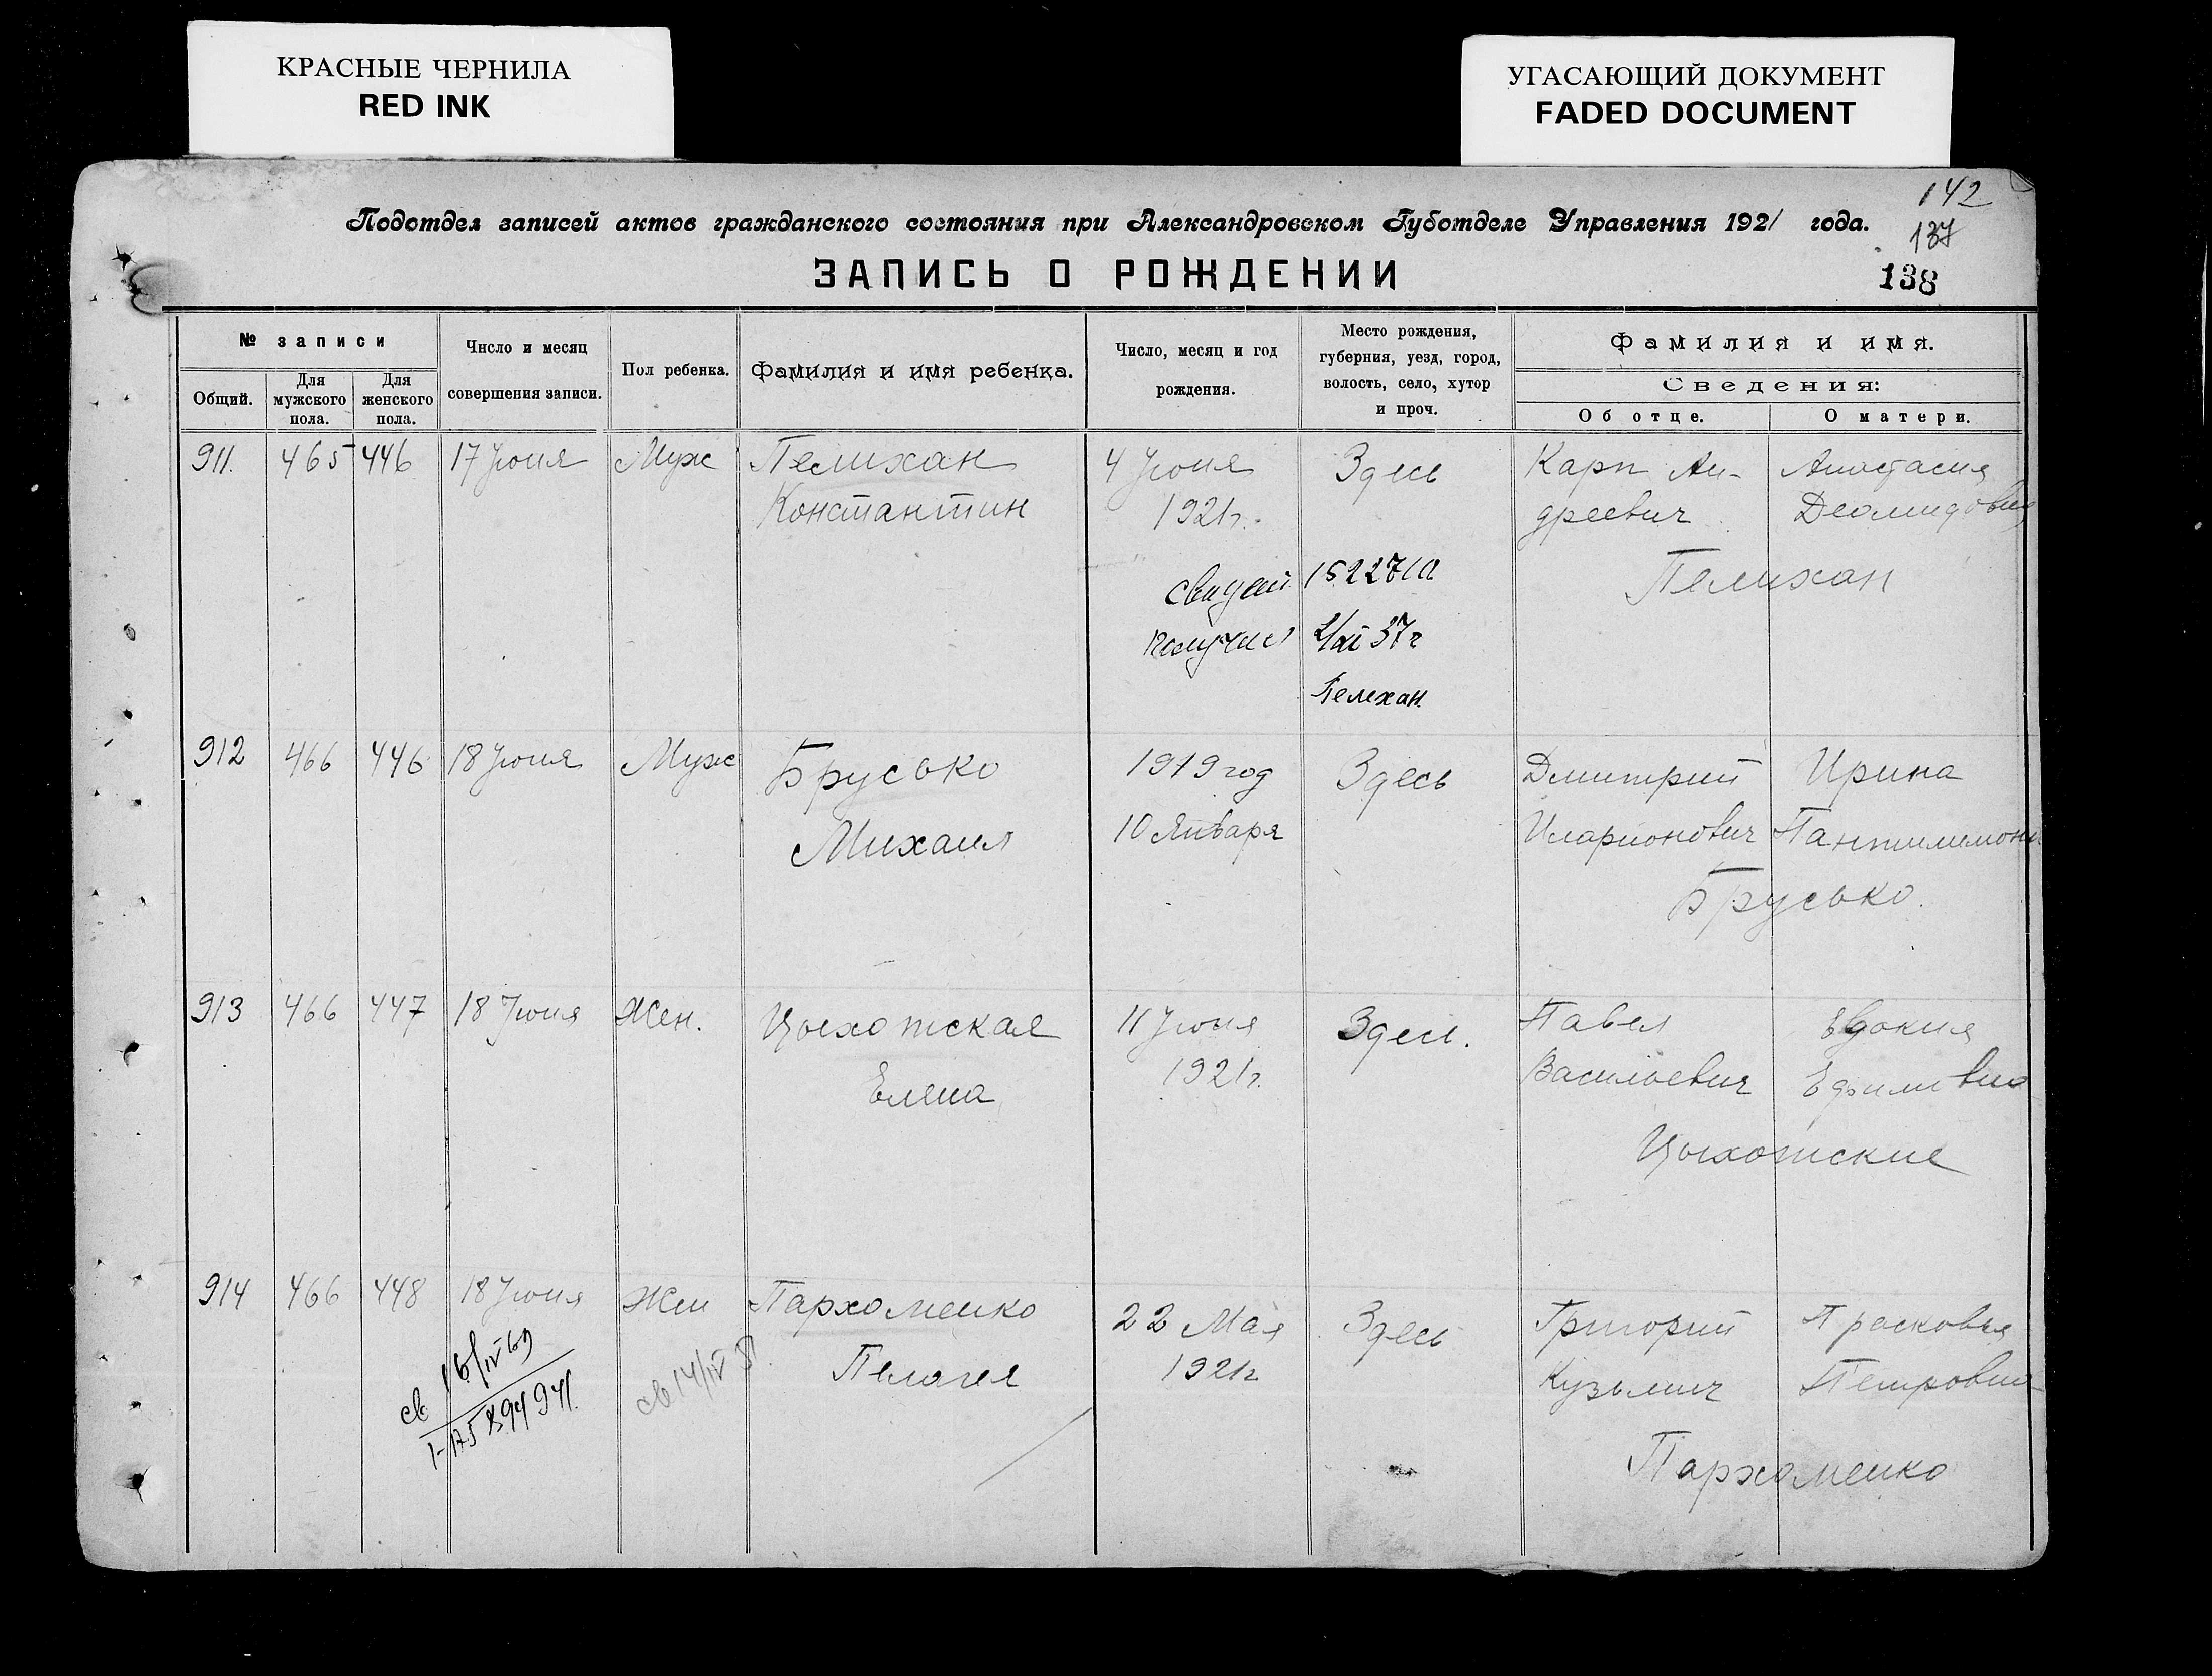 КРАСНЫЕ ЧЕРНИЛА
RED INK
УГАСАЮЩИЙ ДОКУМЕНТ
FADED DOCUMENT
142
Подотдел записей актов гражданского состояния при Александровском Губотделе Управления 1921 года.
137
ЗАПИСЬ О РОЖДЕНИИ
138
№ записи
Общий.
Для мужского пола.
Для женского пола.
Число и месяц
совершения записи.
Пол ребенка.
Фамилия и имя ребенка.
Число, месяц и год
рождения.
Место рождения,
губерния, уезд, город,
волость, село, хутор
и проч.
Фамилия и имя.
Сведения:
Об отце.
О матери.
911. 465 446 17 Июня Муж Пелихан 4 Июня Здесь Карп Ан- Анастасия
Константин 1921г. дреевич Деомидовна
Пелихан
получил 2/XI 37г
Пелехан.
912 466 446 18 Июня Муж Брусько 1919 год Здесь Дмитрий Ирина
Михаил 10 Января Иларионович
Брусько.
913 466 447 18 Июня Жен. Цыхотская 11 Июня Здесь. Павел Евдокия
Елена 1921г. Васильевич Ефимовна
Цыхотские
914 466 448 18 Июня Жен Пархоменко 22 Мая Здесь Григорий Прасковья
Пелагея 1921г Кузьмич Петровна
Пархоменко
св 16/IV 69
св 14/IV